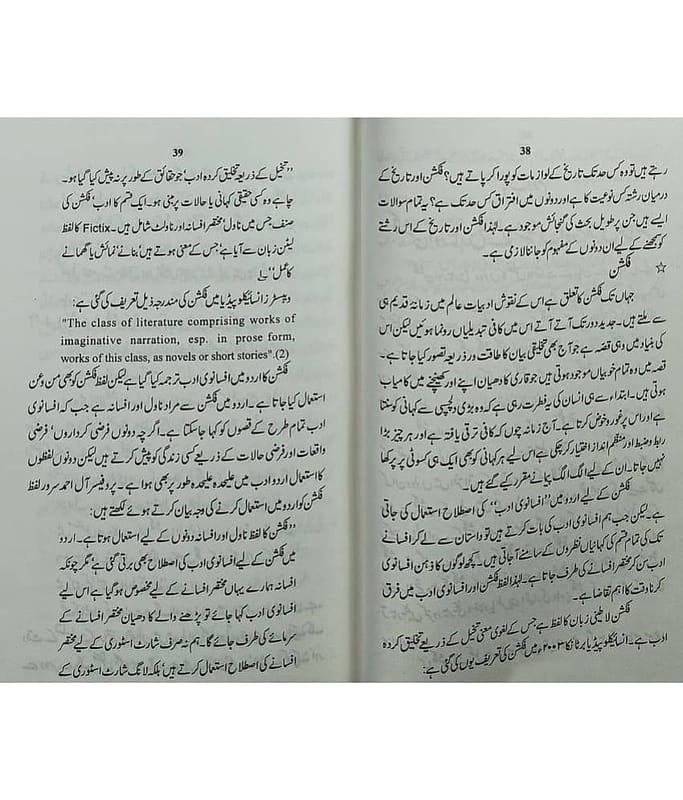 38
رہتے ہیں تو وہ کس حد تک تاریخ کے لوازمات کو پورا کر پاتے ہیں؟ فکشن اور تاریخ کے
درمیان رشتہ کس نوعیت کا ہے اور دونوں میں افتراق کس حد تک ہے؟ یہ تمام سوالات
ایسے ہیں جن پر طویل بحث کی گنجائش موجود ہے۔ لہٰذا فکشن اور تاریخ کے اس رشتے
کو سمجھنے کے لیے ان دونوں کے مفہوم کو جاننا لازمی ہے۔
☆ فکشن
جہاں تک فکشن کا تعلق ہے اس کے نقوش ادبیات عالم میں زمانہ قدیم ہی
سے ملتے ہیں۔ جدید دور تک آتے آتے اس میں کافی تبدیلیاں رونما ہوئیں لیکن اس
کی بنیاد میں وہی قصہ ہے جو آج بھی تخلیقی بیان کا طاقت ور ذریعہ تصور کیا جاتا ہے۔
قصہ میں وہ تمام خوبیاں موجود ہوتی ہیں جو قاری کا دھیان اپنے اور کھینچنے میں کامیاب
ہوتی ہیں۔ ابتداء سے ہی انسان کی یہ فطرت رہی ہے کہ وہ بڑی دلچسپی سے کہانی کو سنتا
ہے اور اس پر غور و خوض کرتا ہے۔ آج زمانہ چوں کہ کافی ترقی یافتہ ہے اور ہر چیز بڑا
ربط و ضبط اور منظم انداز اختیار کر چکی ہے اس لیے ہر کہانی کو بھی ایک ہی کسوٹی پر پرکھا
نہیں جاتا۔ ان کے لیے الگ الگ پیمانے مقرر کیے گئے ہیں۔
فکشن کے لیے اردو میں ’’افسانوی ادب‘‘ کی اصطلاح استعمال کی جاتی
ہے۔ لیکن جب ہم افسانوی ادب کی بات کرتے ہیں تو داستان سے لے کر افسانے
تک کی تمام قسم کی کہانیاں نظروں کے سامنے آ جاتی ہیں۔ کچھ لوگوں کا ذہن افسانوی
ادب سن کر مختصر افسانے کی طرف جاتا ہے۔ لہٰذا لفظ فکشن اور افسانوی ادب میں فرق
کرنا وقت کا اہم تقاضا ہے۔
فکشن لاطینی زبان کا لفظ ہے جس کے لغوی معنی تخیل کے ذریعے تخلیق کردہ
ادب ہے۔ انسائیکلوپیڈیا برٹانکا ۲۰۰۳ء میں فکشن کی تعریف یوں کی گئی ہے:
39
’’تخیل کے ذریعے تخلیق کردہ ادب‘ جو حقائق کے طور پر نہ پیش کیا گیا ہو۔
چاہے وہ کسی حقیقی کہانی یا حالات پر مبنی ہو۔ ایک قسم کا ادب‘ فکشن کی
صنف جس میں ناول‘ مختصر افسانہ اور ناولٹ شامل ہیں۔ Fictix کا لفظ
لیٹن زبان سے آیا ہے‘ جس کے معنی ہوتے ہیں‘ بنانے‘ نمائش یا گھمانے
کا عمل‘‘۔
ویبسٹرز انسائیکلوپیڈیا میں فکشن کی مندرجہ ذیل تعریف کی گئی ہے:
"The class of literature comprising works of
imaginative narration, esp. in prose form,
works of this class, as novels or short stories".(2)
فکشن کا اردو میں افسانوی ادب ترجمہ کیا گیا ہے لیکن لفظ فکشن کو بھی من و عن
استعمال کیا جاتا ہے۔ اردو میں فکشن سے مراد ناول اور افسانہ ہے جب کہ افسانوی
ادب تمام طرح کے قصوں کو کہا جا سکتا ہے۔ اگرچہ دونوں فرضی کرداروں‘ فرضی
واقعات اور فرضی حالات کے ذریعے کسی زندگی کو پیش کرتے ہیں لیکن دونوں لفظوں
کا استعمال اردو ادب میں علیحدہ علیحدہ طور پر بھی ہوا ہے۔ پروفیسر آل احمد سرور لفظ
فکشن کو اردو میں استعمال کرنے کی وجہ بیان کرتے ہوئے لکھتے ہیں:
’’فکشن کا لفظ ناول اور افسانہ دونوں کے لیے استعمال ہوتا ہے۔ اردو
میں فکشن کے لیے افسانوی ادب کی اصطلاح بھی برتی گئی ہے‘ مگر چونکہ
افسانہ ہمارے یہاں مختصر افسانے کے لیے مخصوص ہو گیا ہے اس لیے
افسانوی ادب کہا جائے تو پڑھنے والے کا دھیان مختصر افسانے کے
سرمائے کی طرف جائے گا۔ ہم نہ صرف شارٹ اسٹوری کے لیے مختصر
افسانے کی اصطلاح استعمال کرتے ہیں‘ بلکہ لانگ شارٹ اسٹوری کے